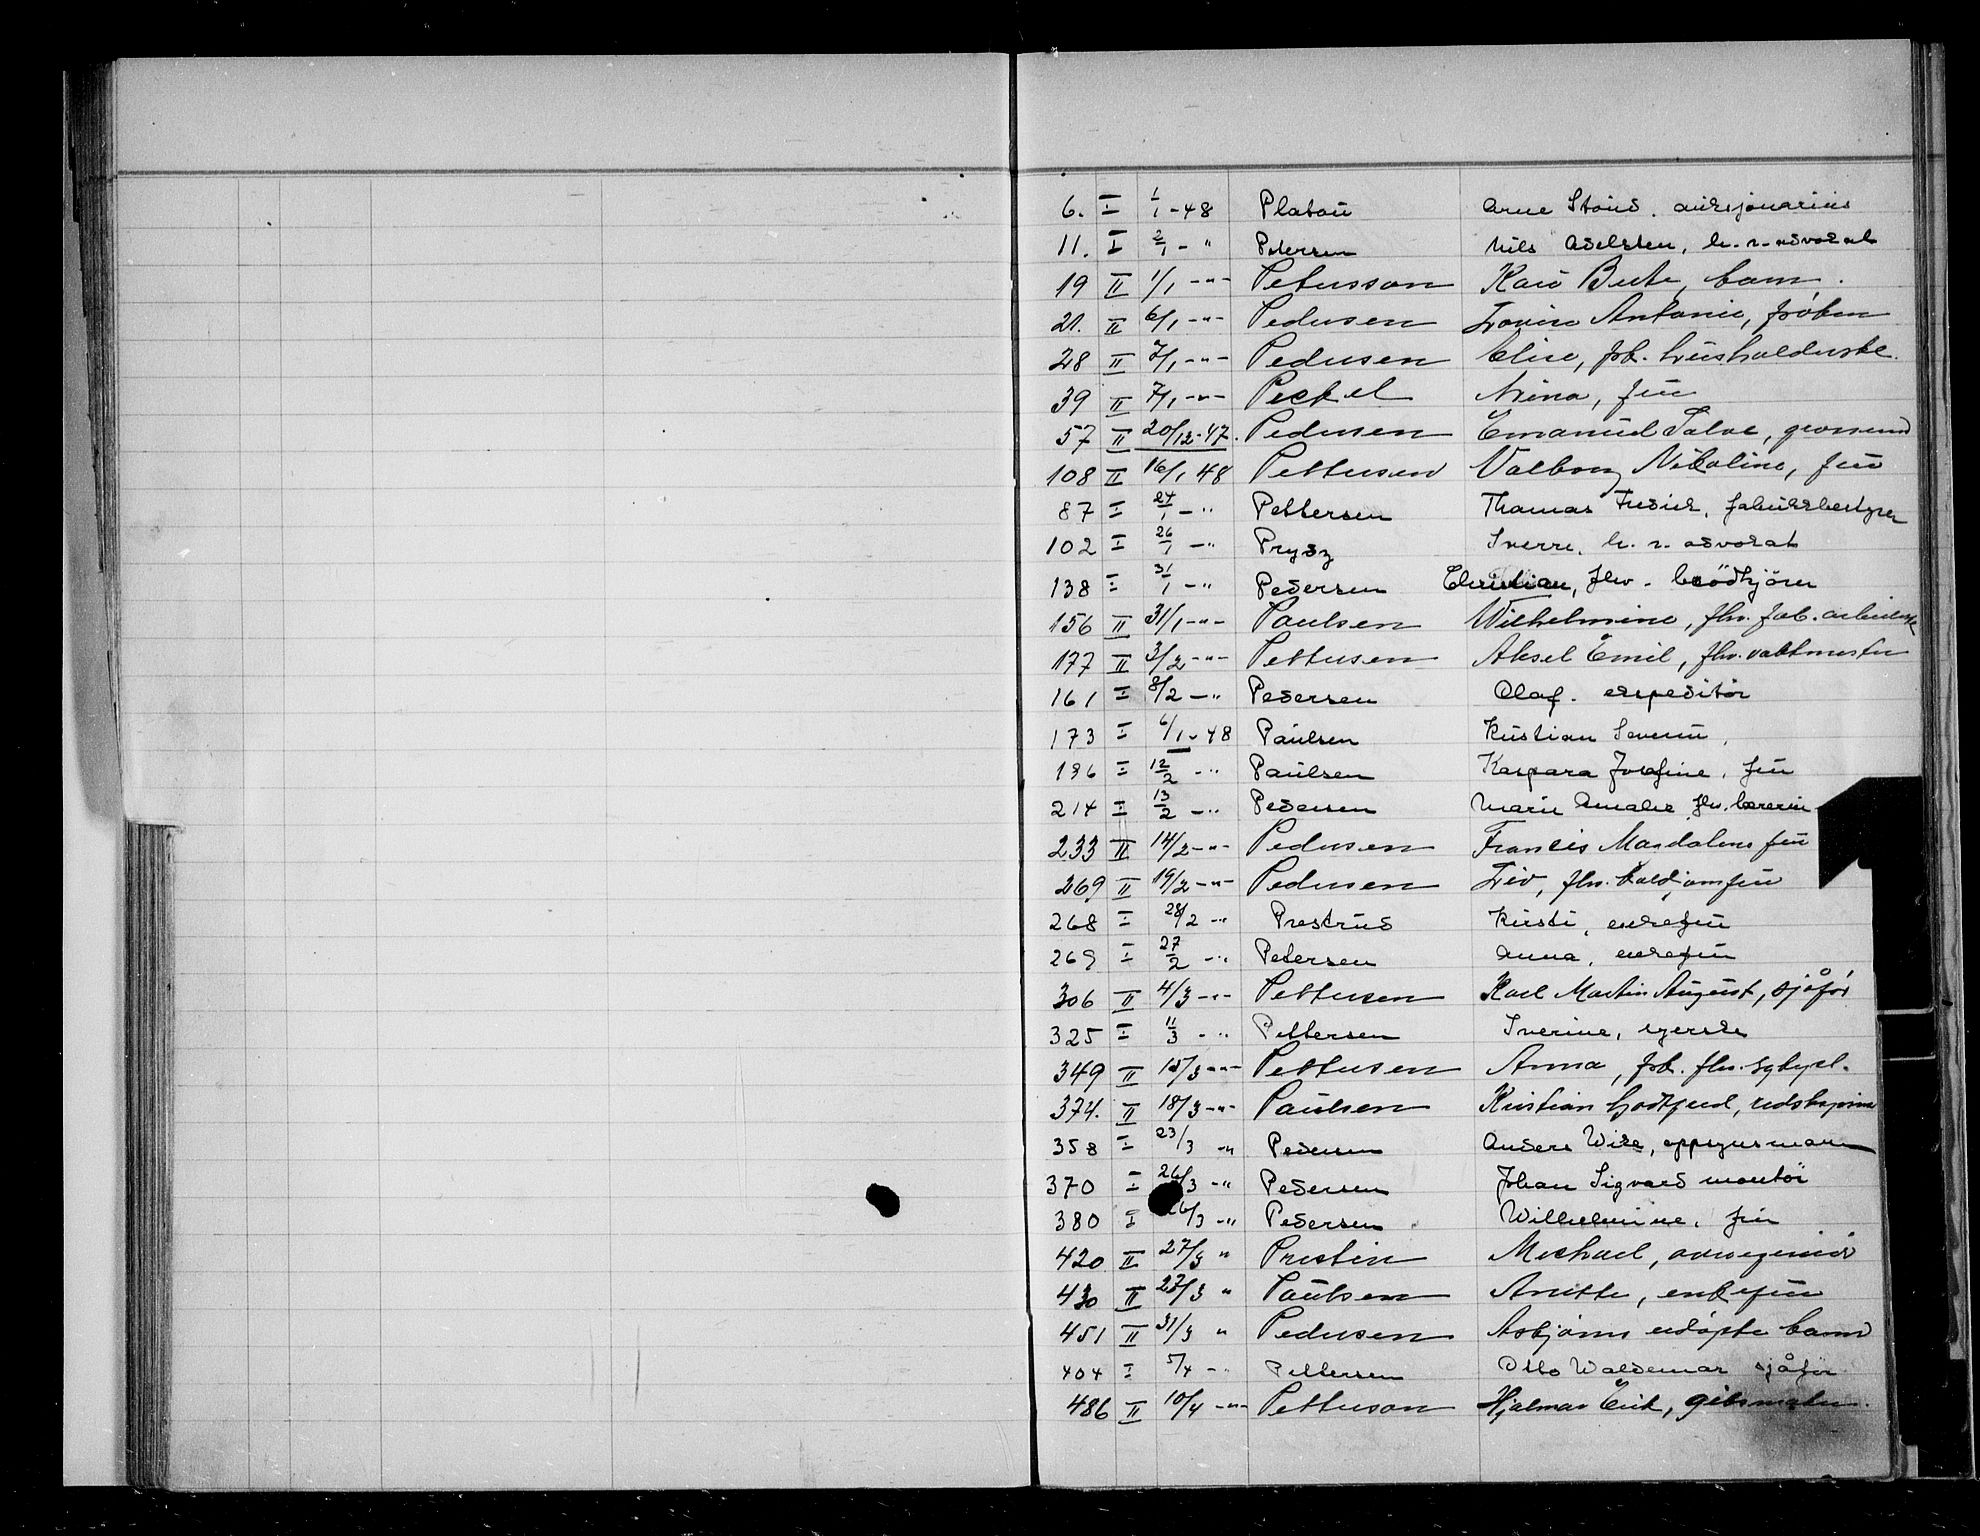 6. I 1/1 -48 Platou Arne Stoud. auksjonarius
11. I 2/1 - " Petersen Nils Adelsten, h.r. advokat
19 II 1/1 -"- Petersson Kari Bente, barn.
21. II 6/1 -"- Pedersen Lovise Antonie, frøken
28 II 7/1 -"- Pedersen Elise, frk. husholderske.
39 II 7/1 -"- Peckel Nina, fru
57 II 20/12-47. Pedersen Emanuel Salve, grosserer
108 II 16/1 48 Pettersen Valborg Nikoline, fru
87 I 24/1 - " Pettersen Thomas Fredrik, fabrikkbestyrer
102 I 26/1 - " Prydz Sverre, h. r. advokat
138 I 31/1 - " Pedersen Christian, fhv. brødkjører
156 II 31/1 -"- Paulsen Wilhelmine, fhv. fab. arbeiderske
177 II 3/2 -"- Pettersen Aksel Emil, fhv. vaktmester
161 I 8/2 - " Pedersen Olaf. ekspeditør
173 I 6/1 - 48 Paulsen Kristian Severin,
196 I 12/2 - " Paulsen Kaspara Josefine, fru
214 I 13/2 - " Pedersen Marie Amalie fhv. lærerin
233 II 14/2 -"- Pedersen Francis Magdalene fru
269 II 19/2 -"- Pedersen Liv, fhv. koldjomfru
268 I 28/2 - " Prestrud Kirsti, enkefru
269 I 27/2 - " Petersen Anna, enkefru
306 II 4/3 -"- Pettersen Karl Martin August, sjåfør
325 I 11/3 - " Pettersen Sverine, syerske
349 II 15/3 -"- Pettersen Anna, frk. fhv. sybyrl.
374. II 18/3 -"- Paulsen Kristian Godtfred,
358 I 23/3 - " Pedersen Anders Wike, oppsynsmann
370 I 26/3 - " Pedersen Johan Sigvard montør
380 I 26/3 - " Pedersen Wilhelmine, fru
420 II 27/3 " Prestin Michael, overingeniør
430 II 27/3 " Paulsen Anette, enkefru
451 II 31/3 " Pedersen Asbjørns udøpte barn
404 I 5/4 - " Pettersen Otto Waldemar sjåfør
486 II 10/4 -"- Petterson Hjalmar Erik, gibsmaker.